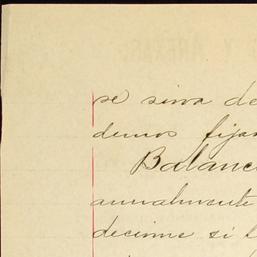 se sirva de
demos fija
Balanc
anualmente
decirme si l